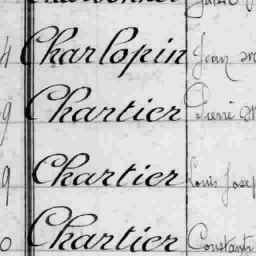 4 Charlopin Jean
9 Chartier Pierre
9 Chartier Louis Josep
0 Chartier Constant